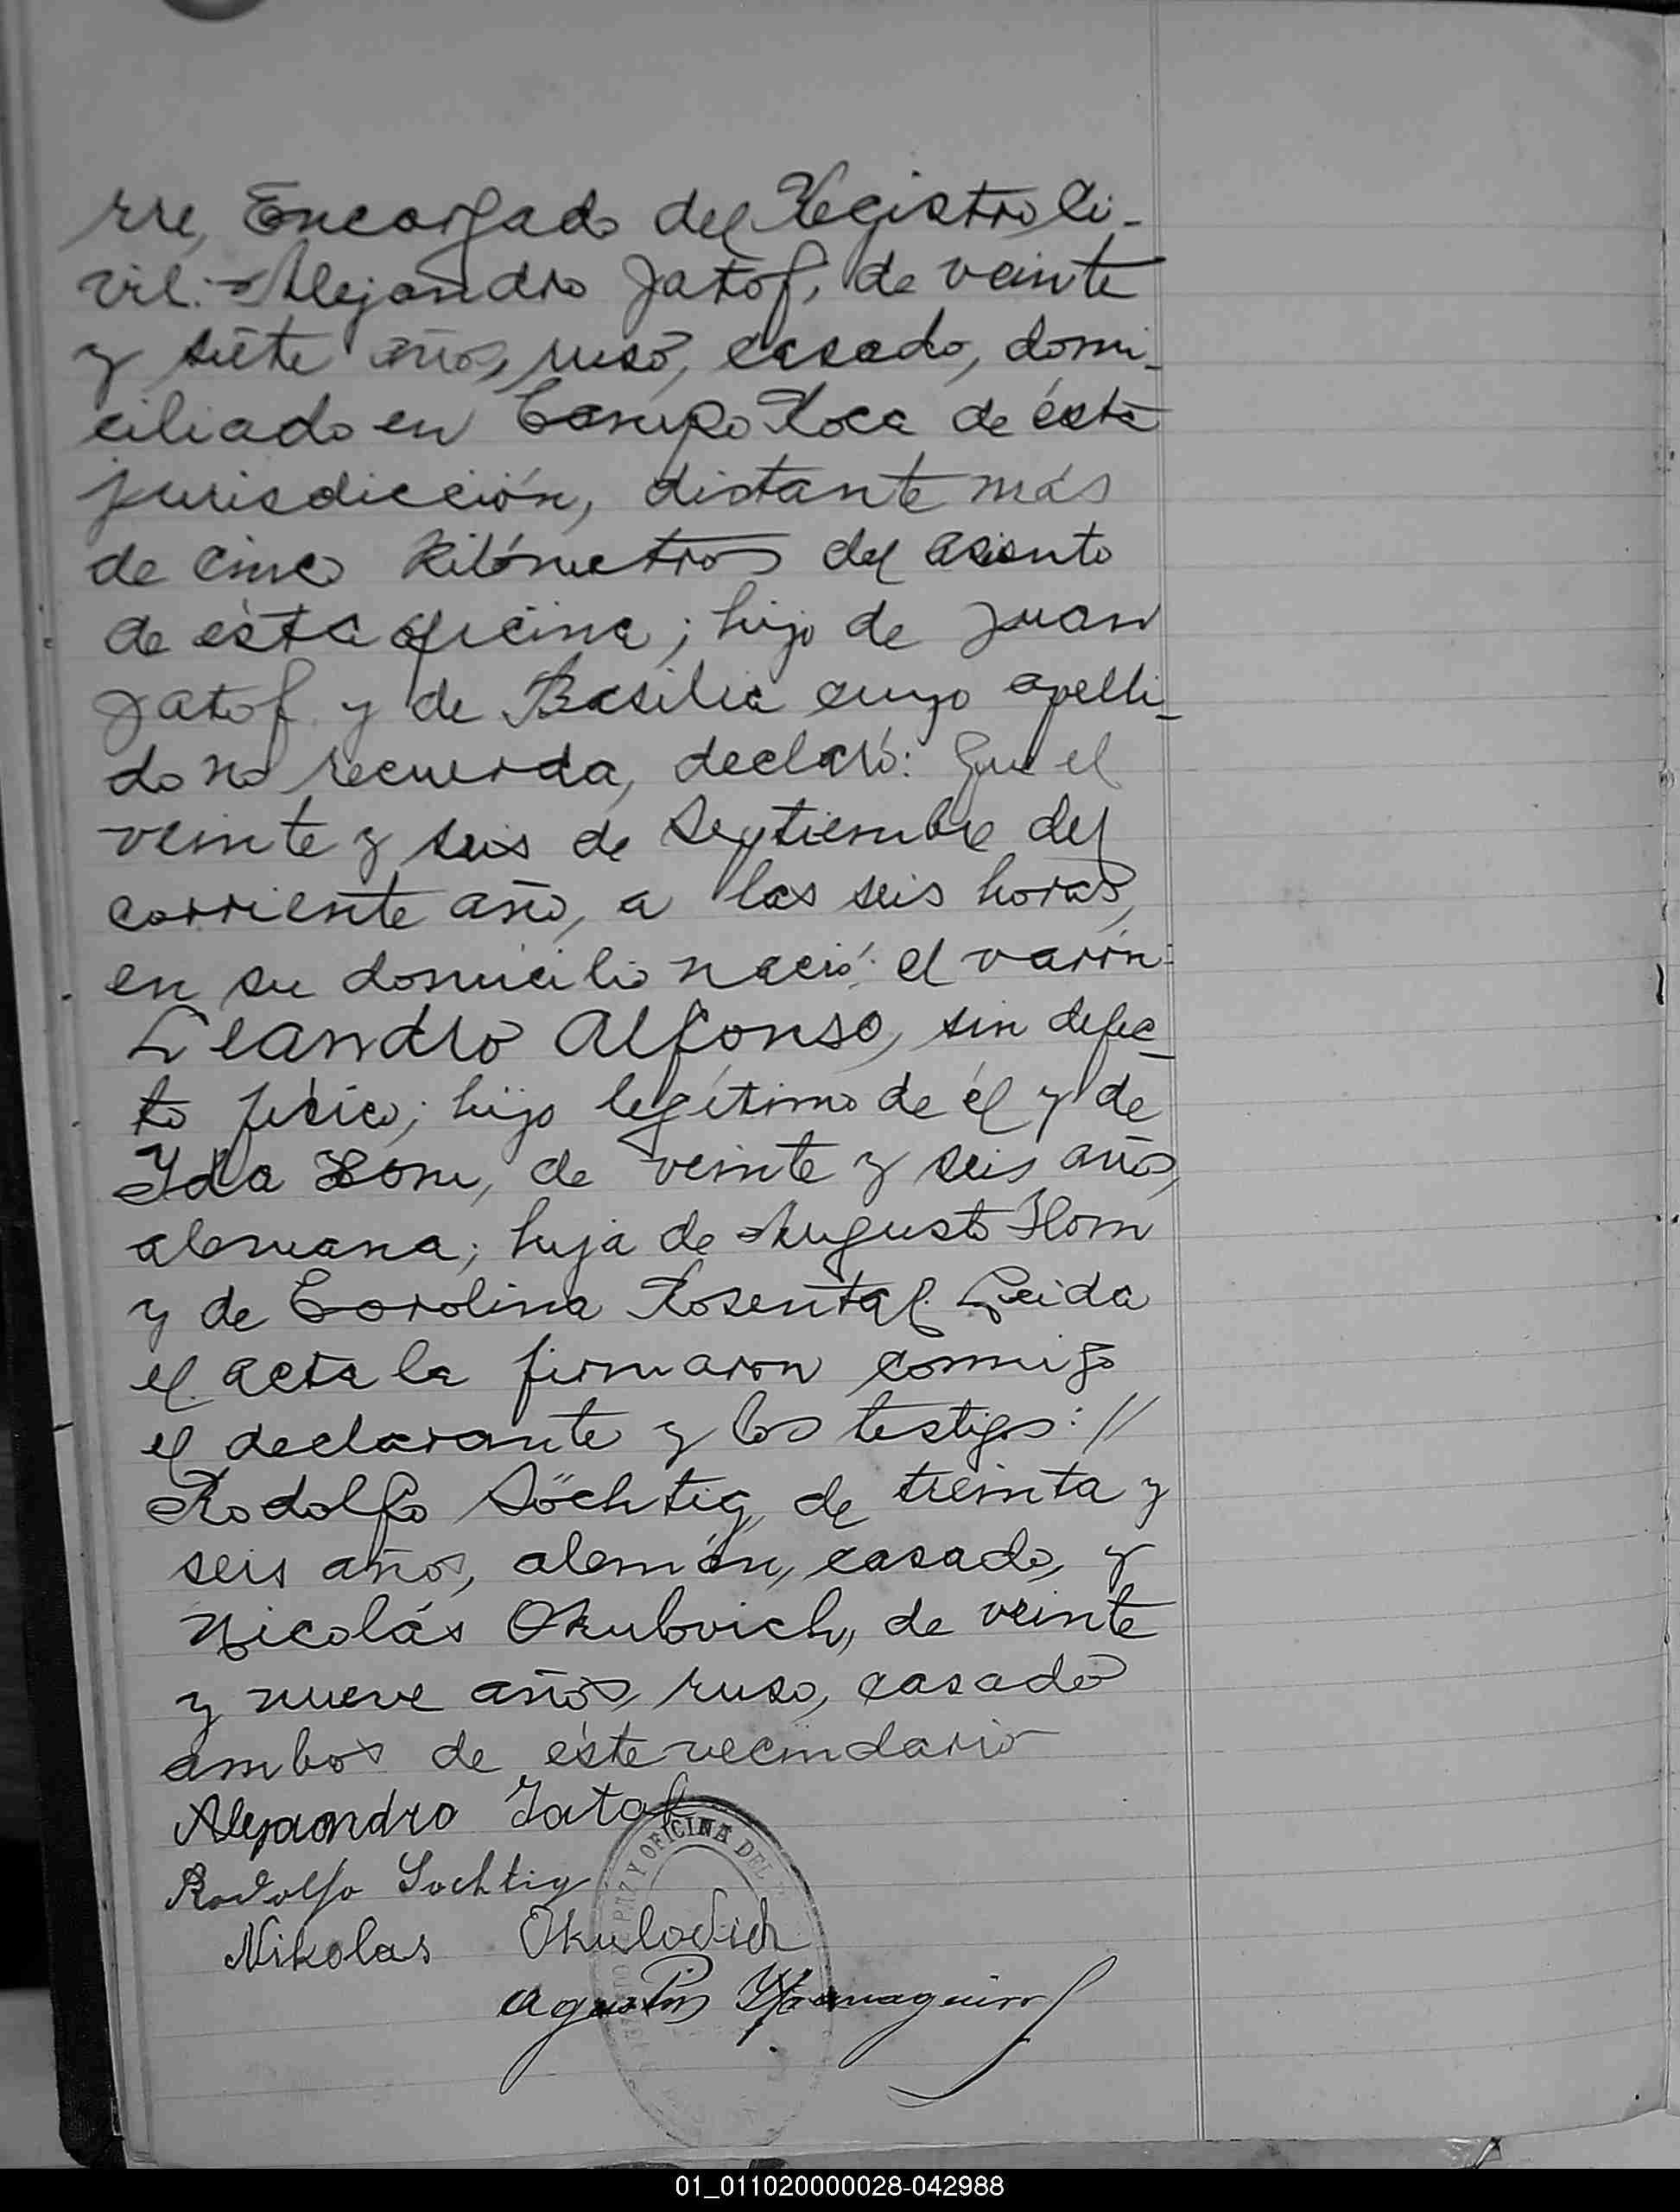 rre, Encargado del Registro Ci-
vil: Alejandro Jatof, de veinte
y siete años, ruso, casado, domi-
ciliado en Campo Roca de ésta
jurisdicción, distante más
de cinco kilómetros del asiento
de ésta oficina; hijo de Juan
Jatof y de Basilia cuyo apelli-
do no recuerda, declaró: Que el
veinte y seis de Septiembre del
corriente año, a las seis horas,
en su domicilio nació: el varón:
Leandro Alfonso, sin defec-
to físico; hijo legítimo de él y de
Yda Hom, de veinte y seis años,
alemana; hija de Augusto Hom
y de Carolina Rosental. Leida
el acta la firmaron conmigo
el declarante y los testigos: //
Rodolfo Söchtig, de treinta y
seis años, alemán, casado, y
Nicolás Okulovich, de veinte
y nueve años, ruso, casado
ambos de éste vecindario
Alejandro Jatof
Rodolfo Sochtig
Nikolas Okulovich
Agustin
PAZ Y OFICINA DEL
01_011020000028-042988